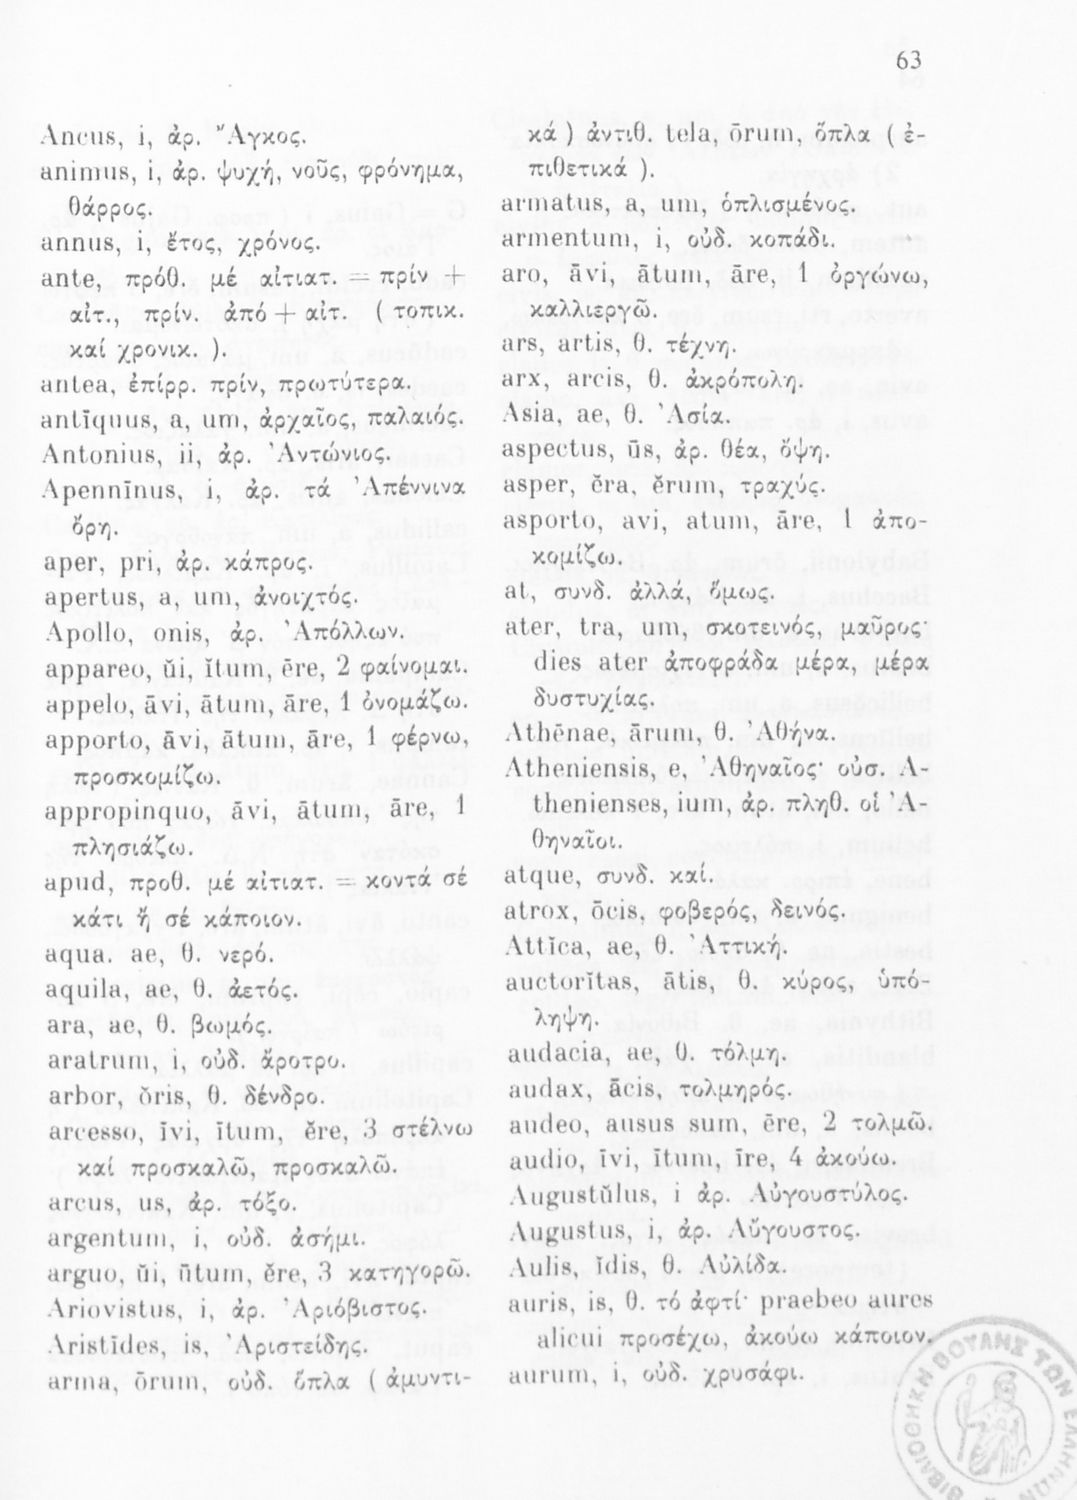 63
Ancus, i, ἀρ. Ἄγκος.
animus, i, ἀρ. ψυχή, νοῦς, φρόνημα,
θάρρος.
annus, i, ἔτος, χρόνος.
ante, πρόθ. μέ αἰτιατ. = πρίν +
αἰτ., πρίν. ἀπό + αἰτ. ( τοπικ.
καί χρονικ. ).
antea, ἐπίρρ. πρίν, πρωτύτερα.
antīquus, a, um, ἀρχαῖος, παλαιός.
Antonius, ii, ἀρ. Ἀντώνιος.
Apennīnus, i, ἀρ. τά Ἀπέννινα
ὄρη.
aper, pri, ἀρ. κάπρος.
apertus, a, um, ἀνοιχτός.
Apollo, onis, ἀρ. Ἀπόλλων.
appareo, ŭi, ĭtum, ēre, 2 φαίνομαι.
appelo, āvi, ātum, āre, 1 ὀνομάζω.
apporto, āvi, ātum, āre, 1 φέρνω,
προσκομίζω.
appropinquo, āvi, ātum, āre, 1
πλησιάζω.
apud, προθ. μέ αἰτιατ. = κοντά σέ
κάτι ἤ σέ κάποιον.
aqua. ae, θ. νερό.
aquila, ae, θ. ἀετός.
ara, ae, θ. βωμός.
aratrum, i, οὐδ. ἄροτρο.
arbor, ŏris, θ. δένδρο.
arcesso, īvi, ītum, ĕre, 3 στέλνω
καί προσκαλῶ, προσκαλῶ.
arcus, us, ἀρ. τόξο.
argentum, i, οὐδ. ἀσήμι.
arguo, ŭi, ūtum, ĕre, 3 κατηγορῶ.
Ariovistus, i, ἀρ. Ἀριόβιστος.
Aristīdes, is, Ἀριστείδης.
arma, ōrum, οὐδ. ὅπλα ( ἀμυντι-
κά ) ἀντιθ. tela, ōrum, ὅπλα ( ἐ-
πιθετικά ).
armatus, a, um, ὁπλισμένος.
armentum, i, οὐδ. κοπάδι.
aro, āvi, ātum, āre, 1 ὀργώνω,
καλλιεργῶ.
ars, artis, θ. τέχνη.
arx, arcis, θ. ἀκρόπολη.
Asia, ae, θ. Ἀσία.
aspectus, ūs, ἀρ. θέα, ὄψη.
asper, ĕra, ĕrum, τραχύς.
asporto, avi, atum, āre, 1 ἀπο-
κομίζω.
at, συνδ. ἀλλά, ὅμως.
ater, tra, um, σκοτεινός, μαῦρος·
dies ater ἀποφράδα μέρα, μέρα
δυστυχίας.
Athēnae, ārum, θ. Ἀθήνα.
Atheniensis, e, Ἀθηναῖος· οὐσ. A-
thenienses, ium, ἀρ. πληθ. οἱ Ἀ-
θηναῖοι.
atque, συνδ. καί.
atrox, ōcis, φοβερός, δεινός.
Attĭca, ae, θ. Ἀττική.
auctorĭtas, ātis, θ. κύρος, ὑπό-
ληψη.
audacia, ae, θ. τόλμη.
audax, ācis, τολμηρός.
audeo, ausus sum, ēre, 2 τολμῶ.
audio, īvi, ītum, īre, 4 ἀκούω.
Augustŭlus, i ἀρ. Αὐγουστύλος.
Augustus, i, ἀρ. Αὔγουστος.
Aulis, ĭdis, θ. Αὐλίδα.
auris, is, θ. τό ἀφτί· praebeo aures
alicui προσέχω, ἀκούω κάποιον.
aurum, i, οὐδ. χρυσάφι.
ΒΙΒΛΙΟΘΗΚΗ ΒΟΥΛΗΣ ΤΩΝ ΕΛΛΗΝΩΝ